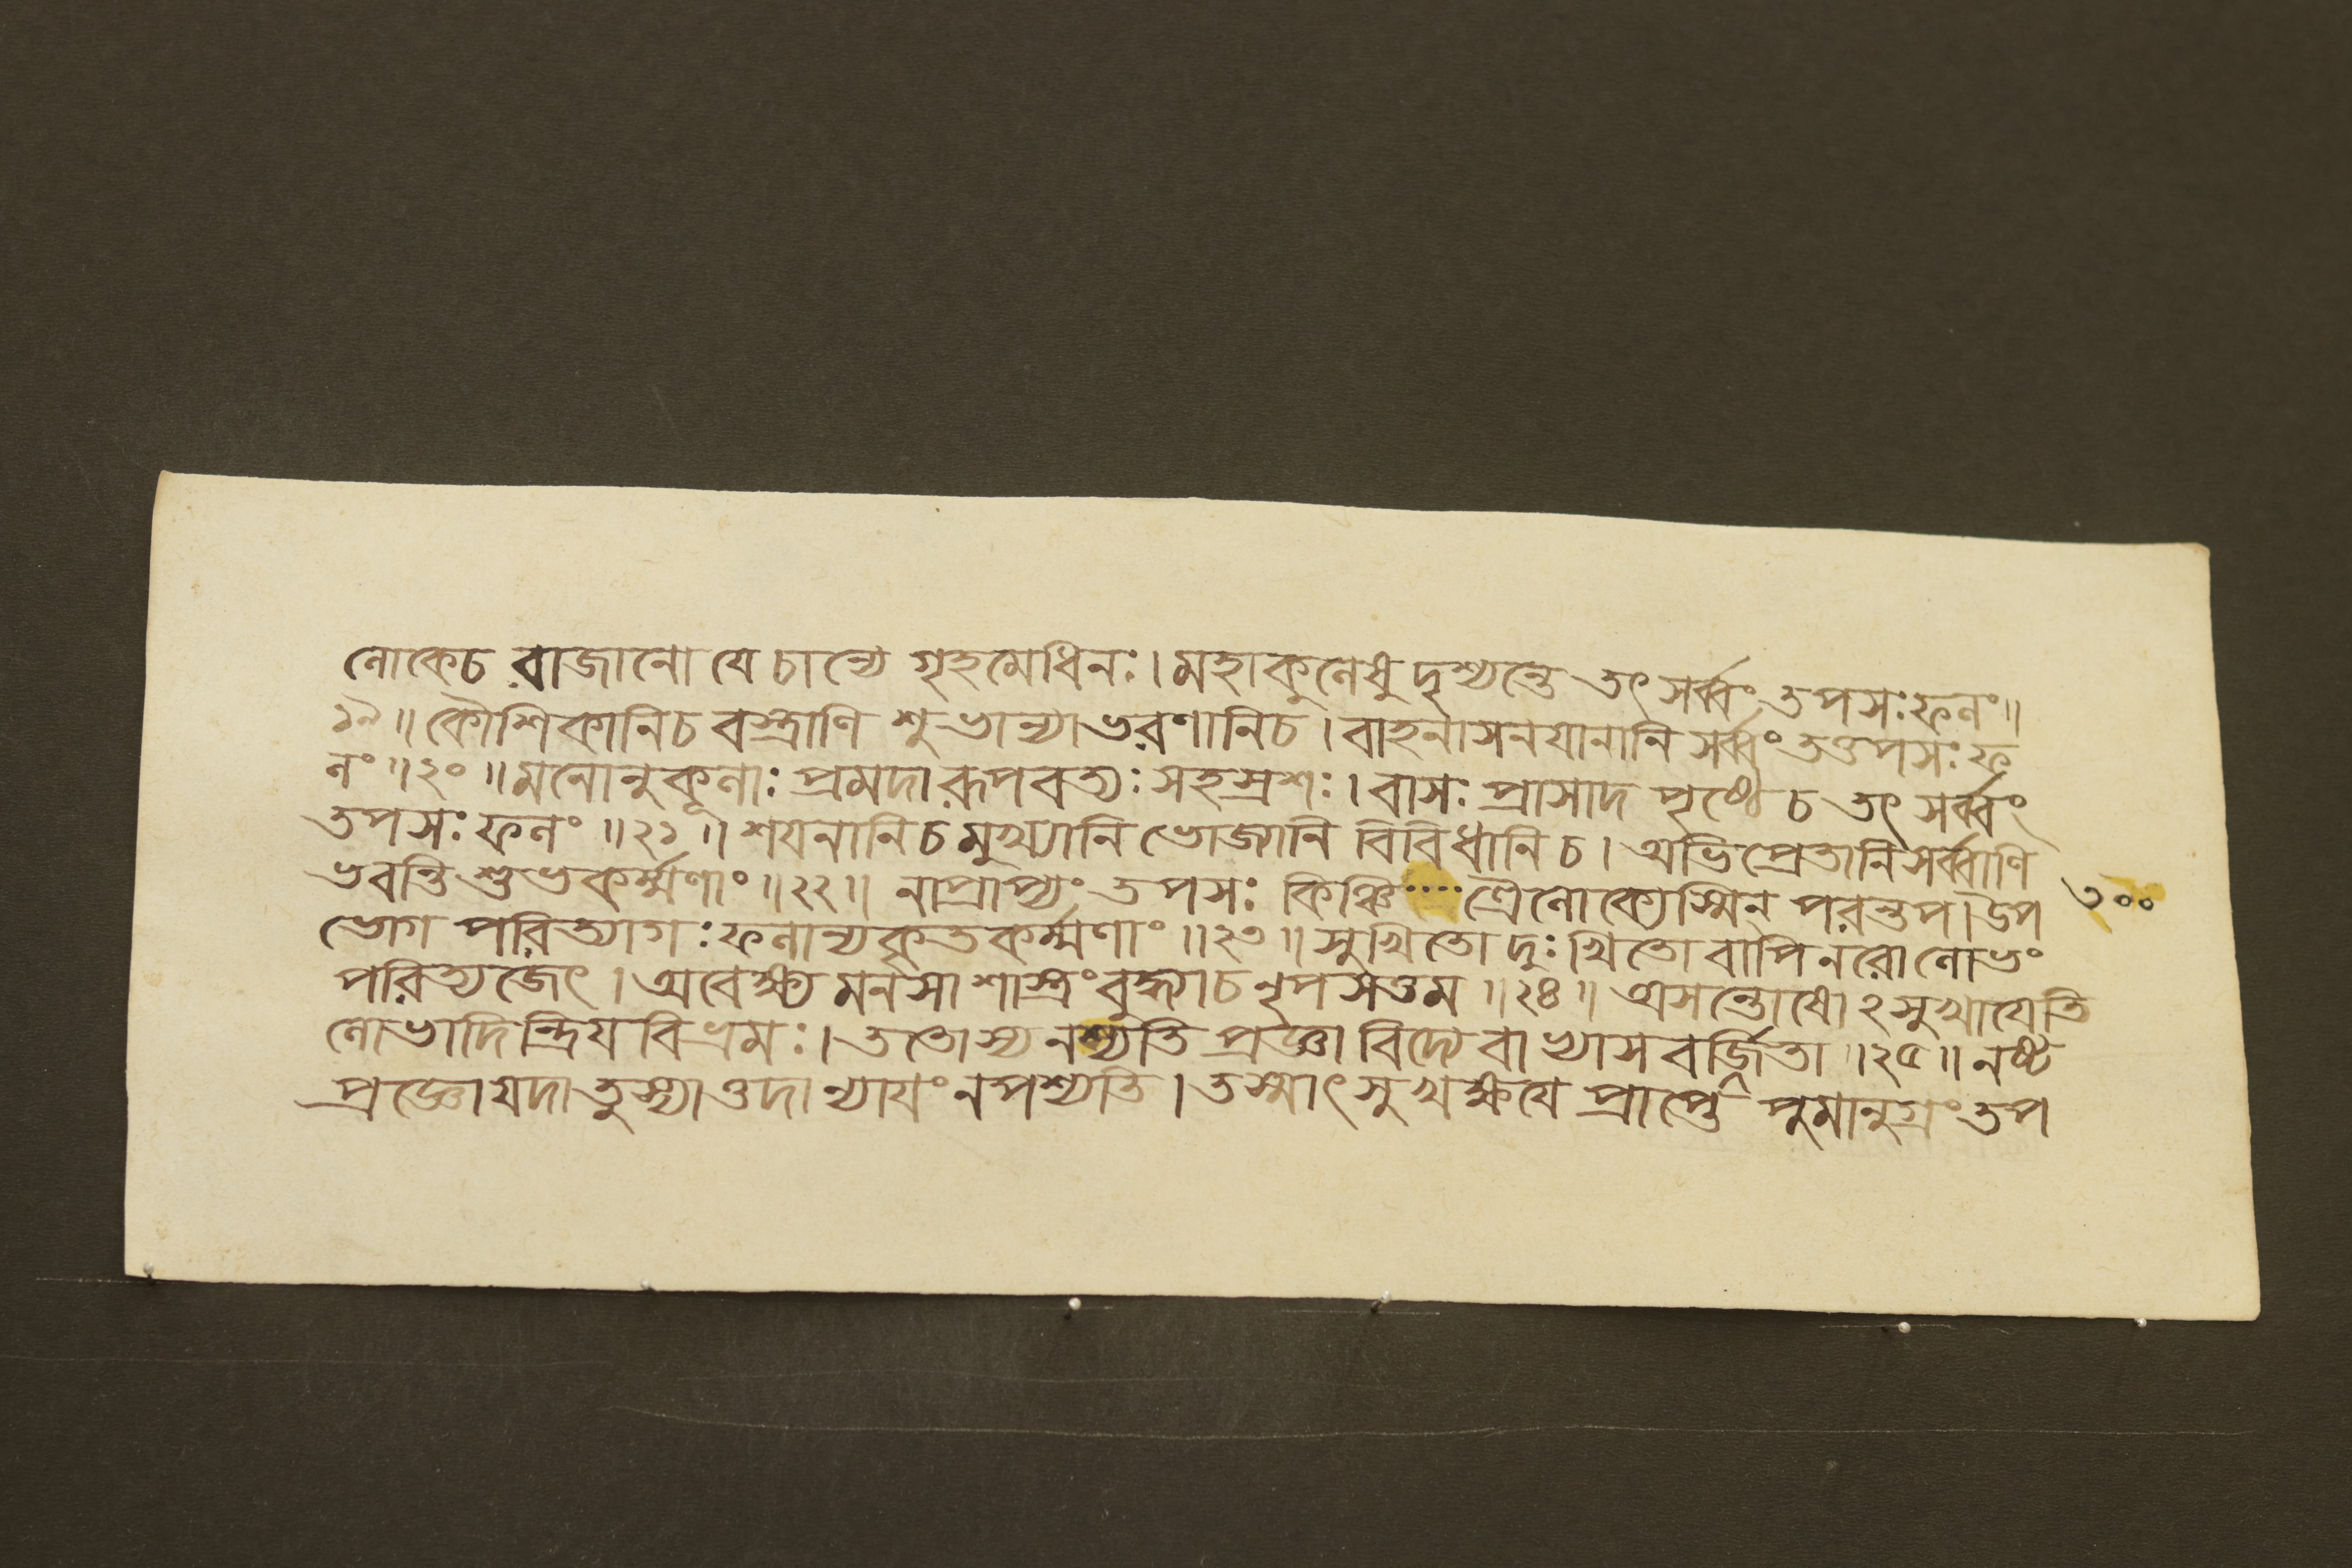 লোকেচ রাজানো যে চান্যে গৃহমেধিনঃ। মহাকুলেষু দৃশ্যন্তে তৎ সর্ব্বং তপসঃ ফলং॥
১৯॥ কৌশিকানিচ বস্ত্রাণি শুভান্যাভরণানিচ। বাহনাসনযানানি সর্ব্বং তত্তপসঃ ফ
লং॥ ২০॥ মনোনুকূলাঃ প্রমদা রূপবত্যঃ সহস্রশঃ। বাসঃ প্রাসাদ পৃষ্ঠে চ তৎ সর্ব্বং
তপসঃ ফলং॥ ২১॥ শযনানিচ মুখ্যানি ভোজ্যানি বিবিধানিচ। অভিপ্রেতানি সর্ব্বাণি
ভবন্তি শুভকর্ম্মণাং॥ ২২॥ নাপ্রাপ্যং তপসঃ কিঞ্চি····ত্রৈলোক্যেস্মিন্ পরন্তপ। উপ
ভোগ পরিত্যাগঃ ফলান্যকৃতকর্ম্মণাং॥ ২৩॥ সুখিতো দুঃখিতো বাপি নরো লোভং
পরিত্যজেৎ। অবেক্ষ্য মনসা শাস্ত্রং বুদ্ধ্যাচ নৃপসত্তম॥ ২৪॥ অসন্তোষোঽসুখাযেতি
লোভাদিন্দ্রিযবিভ্রমঃ। ততোস্য নশ্যতি প্রজ্ঞা বিদ্যেবাভ্যাস বর্জিতা॥ ২৫॥ নষ্ট
প্রজ্ঞো যদা তু স্যাত্তদা ন্যাযং ন পশ্যতি। তস্মাৎ সুখক্ষযে প্রাপ্তে পুমানুগ্রং তপ
৩০০